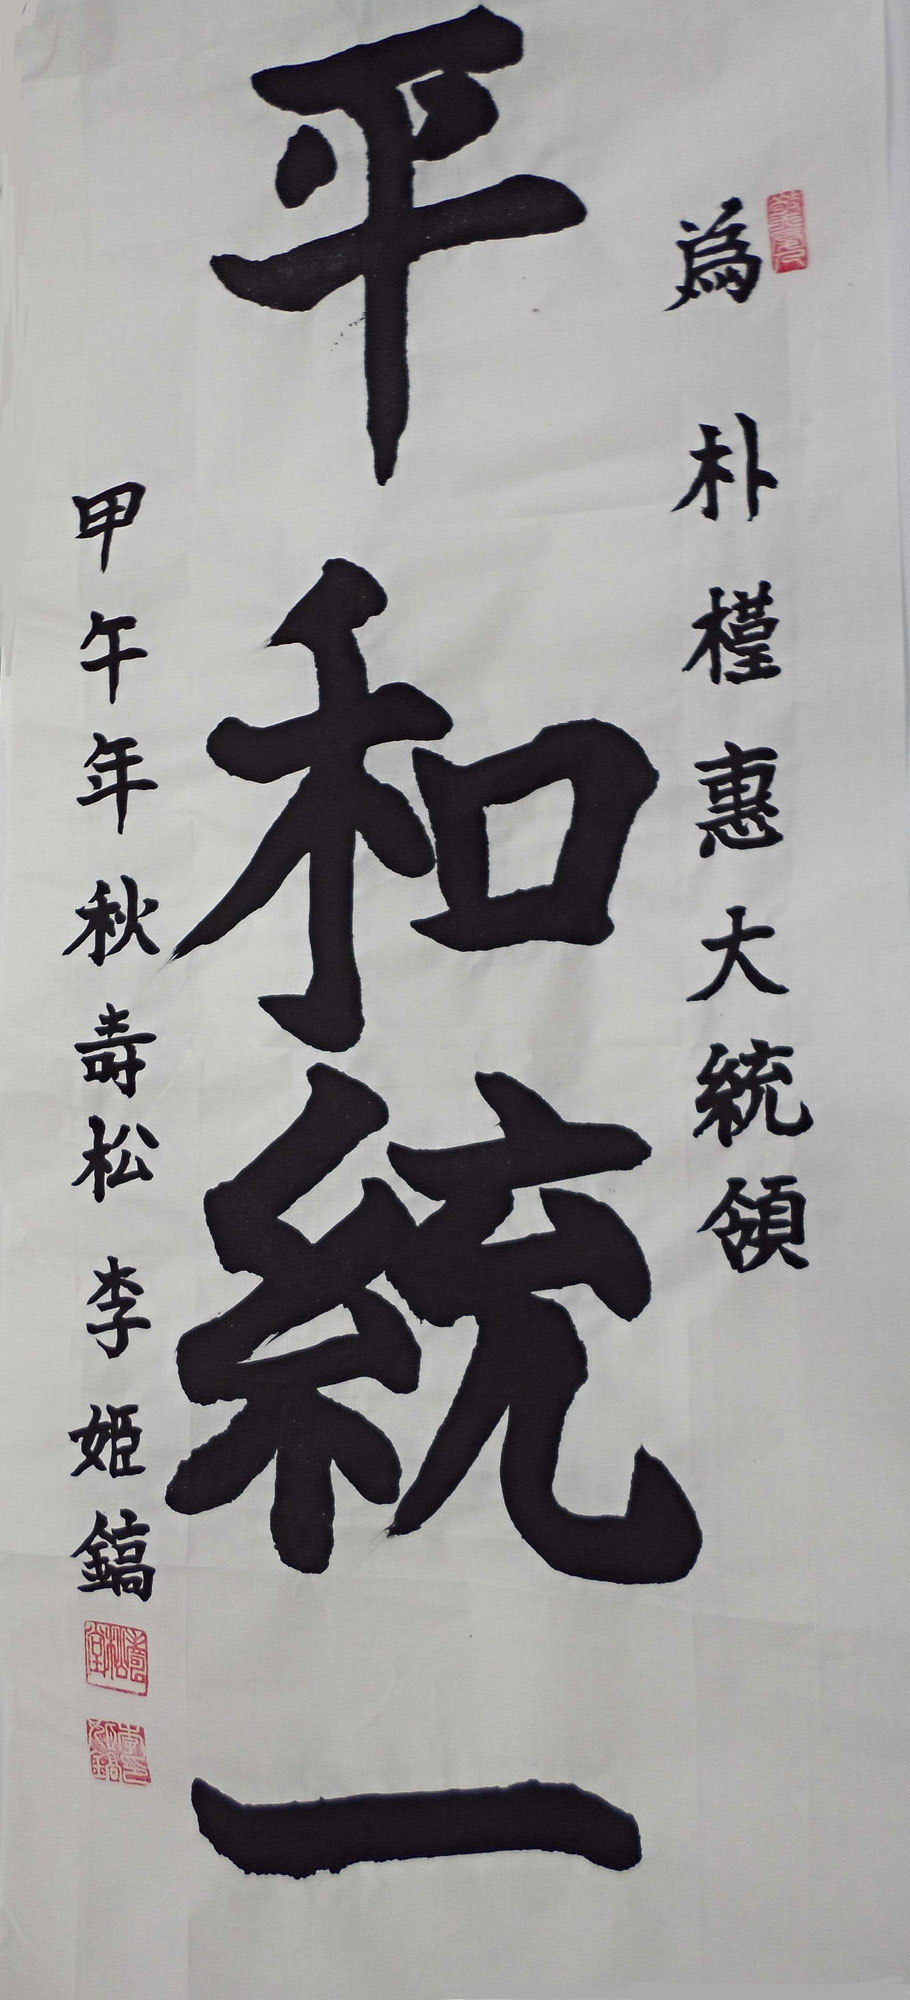 為朴槿惠大統領
平和統一
甲午年秋壽松 李姬鎬